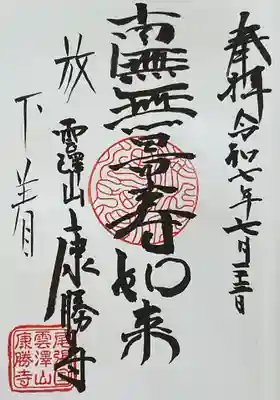 奉拝 令和七年七月二十三日
南無無量寿如来
雲澤山 康勝寺
放下着
雲澤山
康勝寺